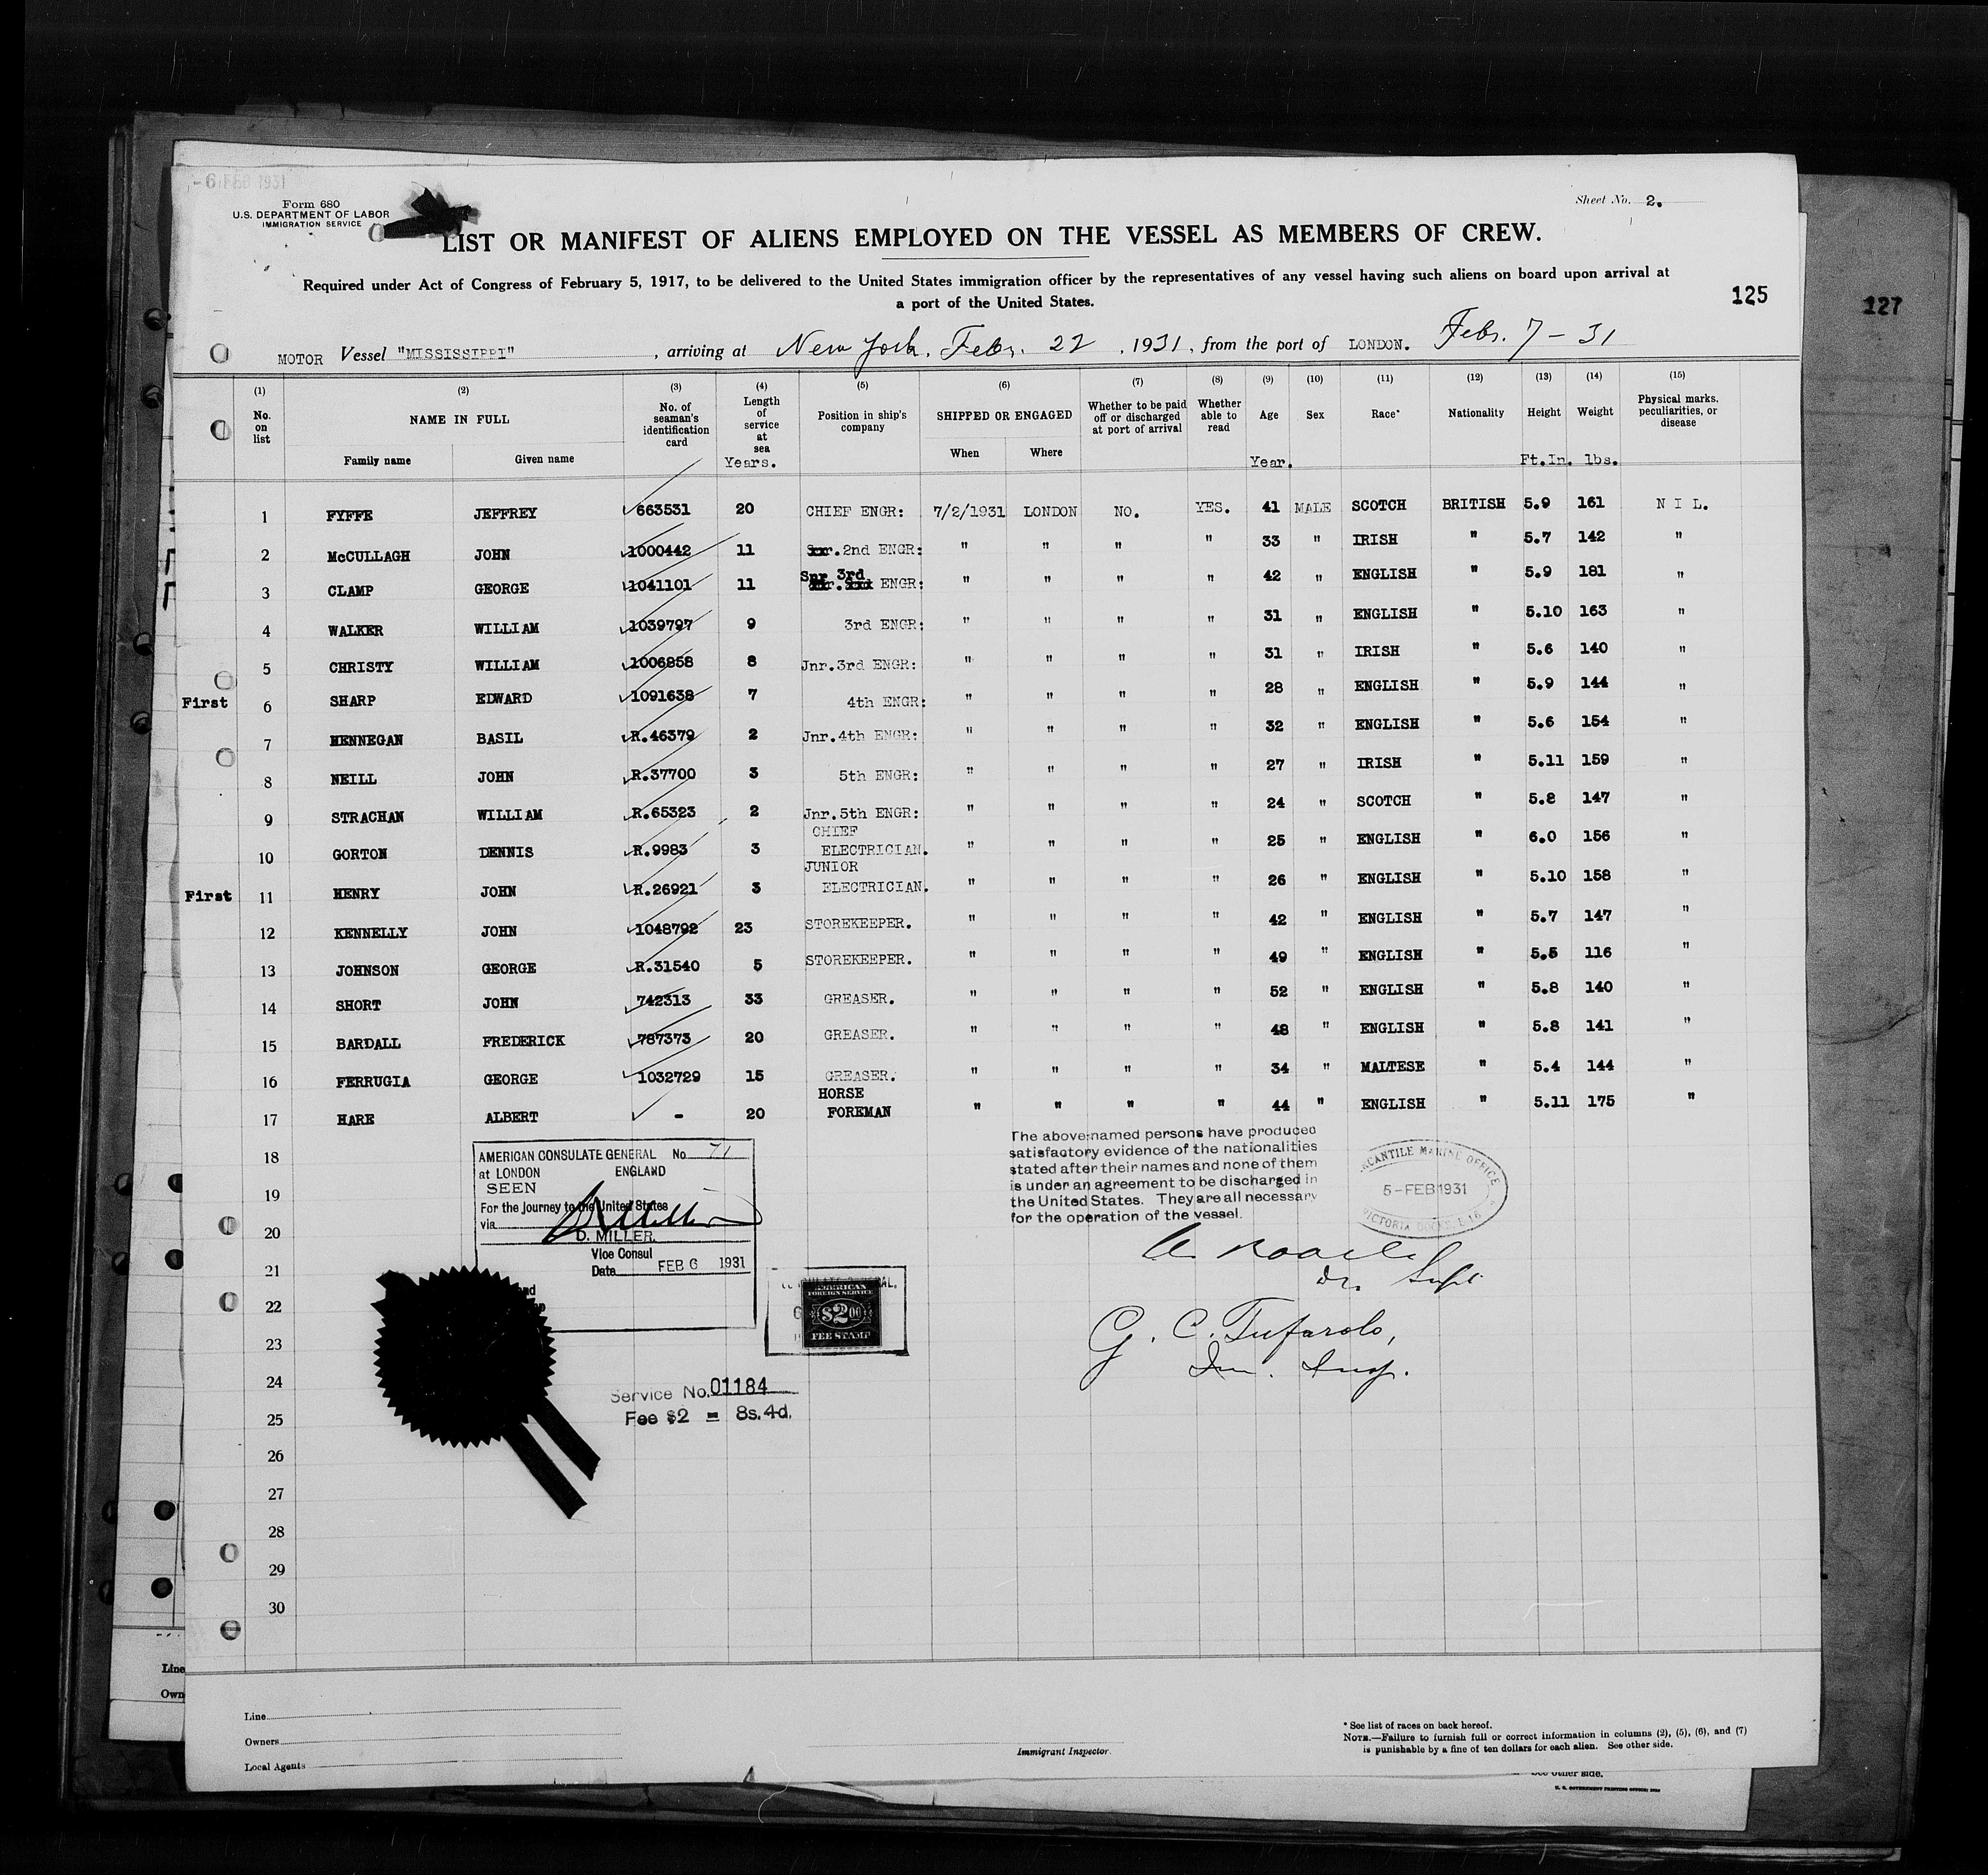 -6 FEB 1931
Form 680
U.S. DEPARTMENT OF LABOR
IMMIGRATION SERVICE
Sheet No. 2.
LIST OR MANIFEST OF ALIENS EMPLOYED ON THE VESSEL AS MEMBERS OF CREW.
Required under Act of Congress of February 5, 1917, to be delivered to the United States immigration officer by the representatives of any vessel having such aliens on board upon arrival at
a port of the United States.
125
127
MOTOR Vessel "MISSISSIPPI", arriving at New York, Febr. 22, 1931, from the port of LONDON. Febr. 7 - 31
(1) (2) (3) (4) (5) (6) (7) (8) (9) (10) (11) (12) (13) (14) (15)
No. on list NAME IN FULL Family name Given name No. of seaman's identification card Length of service at sea Years. Position in ship's company SHIPPED OR ENGAGED When Where Whether to be paid off or discharged at port of arrival Whether able to read Age Year. Sex Race* Nationality Height Ft.In. Weight lbs. Physical marks. peculiarities, or disease
1 FYFFE JEFFREY 663531 20 CHIEF ENGR: 7/2/1931 LONDON NO. YES. 41 MALE SCOTCH BRITISH 5.9 161 N I L.
2 McCULLAGH JOHN 1000442 11 2nd ENGR: " " " " 33 " IRISH " 5.7 142 "
3 CLAMP GEORGE 1041101 11 Snr 3rd ENGR: " " " " 42 " ENGLISH " 5.9 181 "
4 WALKER WILLIAM 1039797 9 3rd ENGR: " " " " 31 " ENGLISH " 5.10 163 "
5 CHRISTY WILLIAM 1006958 8 Jnr.3rd ENGR: " " " " 31 " IRISH " 5.6 140 "
First 6 SHARP EDWARD 1091638 7 4th ENGR: " " " " 28 " ENGLISH " 5.9 144 "
7 HENNEGAN BASIL R.46379 2 Jnr.4th ENGR: " " " " 32 " ENGLISH " 5.6 154 "
8 NEILL JOHN R.37700 3 5th ENGR: " " " " 27 " IRISH " 5.11 159 "
9 STRACHAN WILLIAM R.65323 2 Jnr.5th ENGR: " " " " 24 " SCOTCH " 5.8 147 "
10 GORTON DENNIS R.9983 3 CHIEF ELECTRICIAN. " " " " 25 " ENGLISH " 6.0 156 "
First 11 HENRY JOHN R.26921 3 JUNIOR ELECTRICIAN. " " " " 26 " ENGLISH " 5.10 158 "
12 KENNELLY JOHN 1048792 23 STOREKEEPER. " " " " 42 " ENGLISH " 5.7 147 "
13 JOHNSON GEORGE R.31540 5 STOREKEEPER. " " " " 49 " ENGLISH " 5.5 116 "
14 SHORT JOHN 742313 33 GREASER. " " " " 52 " ENGLISH " 5.8 140 "
15 BARDALL FREDERICK 787373 20 GREASER. " " " " 48 " ENGLISH " 5.8 141 "
16 FERRUGIA GEORGE 1032729 15 GREASER. " " " " 34 " MALTESE " 5.4 144 "
17 HARE ALBERT - 20 HORSE FOREMAN " " " " 44 " ENGLISH " 5.11 175 "
18
19
20
21
22
23
24
25
26
27
28
29
30
AMERICAN CONSULATE GENERAL No. 71
at LONDON ENGLAND
SEEN
For the journey to the United States
via
D. MILLER.
Vice Consul
Date FEB 6 1931
AMERICAN
FOREIGN SERVICE
$2.00
FEE STAMP
Service No. 01184
Fee $2 = 8s. 4d.
The above-named persons have produced
satisfactory evidence of the nationalities
stated after their names and none of them
is under an agreement to be discharged in
the United States. They are all necessary
for the operation of the vessel.
MERCANTILE MARINE OFFICE
5-FEB 1931
VICTORIA DOCKS. E.16
Supt
G. C. Tufarolo,
Im. Insp.
Line
Owners
Local Agents
Immigrant Inspector.
* See list of races on back hereof.
NOTE.—Failure to furnish full or correct information in columns (2), (5), (6), and (7)
is punishable by a fine of ten dollars for each alien. See other side.
See other side.
Line
Own